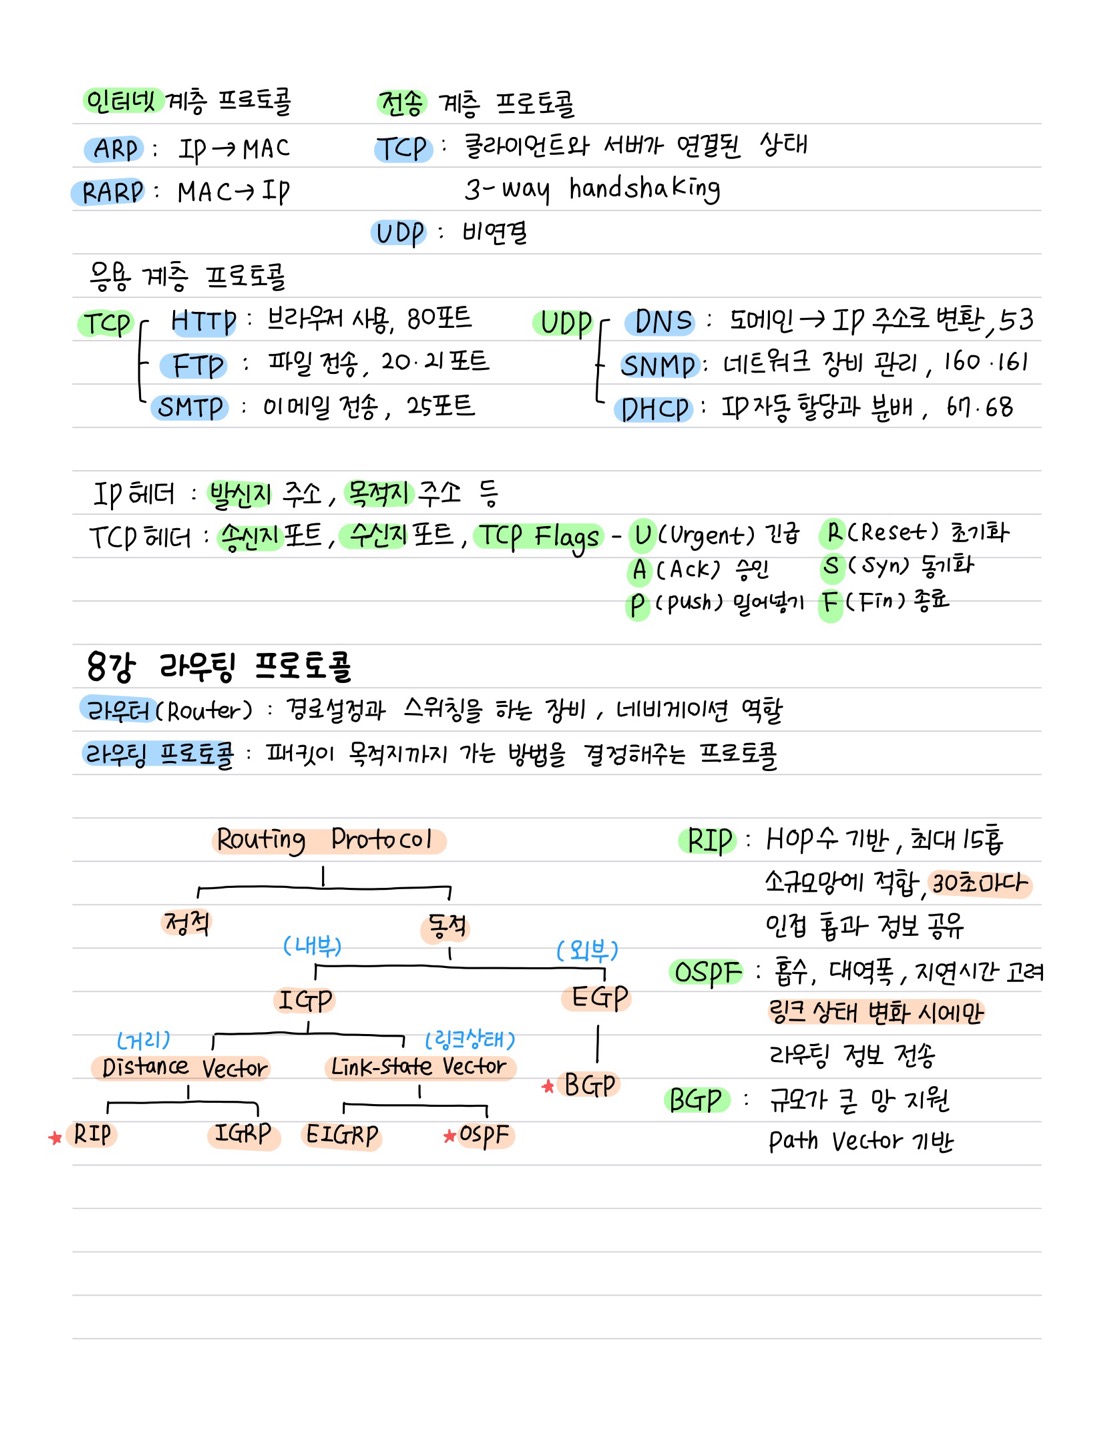 인터넷 계층 프로토콜
ARP : IP → MAC
RARP : MAC → IP
전송 계층 프로토콜
TCP : 클라이언트와 서버가 연결된 상태
3-way handshaking
UDP : 비연결
응용 계층 프로토콜
TCP
HTTP : 브라우저 사용, 80포트
FTP : 파일 전송, 20·21 포트
SMTP : 이메일 전송, 25포트
UDP
DNS : 도메인 → IP 주소로 변환, 53
SNMP : 네트워크 장비 관리, 160·161
DHCP : IP 자동 할당과 분배, 67·68
IP 헤더 : 발신지 주소, 목적지 주소 등
TCP 헤더 : 송신지 포트, 수신지 포트, TCP Flags - U (Urgent) 긴급 R (Reset) 초기화
A (Ack) 승인 S (Syn) 동기화
P (push) 밀어넣기 F (Fin) 종료
8강 라우팅 프로토콜
라우터 (Router) : 경로설정과 스위칭을 하는 장비, 네비게이션 역할
라우팅 프로토콜 : 패킷이 목적지까지 가는 방법을 결정해주는 프로토콜
Routing Protocol
정적 동적
(내부) (외부)
IGP EGP
(거리) (링크상태)
Distance Vector Link-state Vector
★ BGP
★ RIP IGRP EIGRP ★ OSPF
RIP : HOP수 기반, 최대 15홉
소규모망에 적합, 30초마다
인접 홉과 정보 공유
OSPF : 홉수, 대역폭, 지연시간 고려
링크 상태 변화 시에만
라우팅 정보 전송
BGP : 규모가 큰 망 지원
Path Vector 기반